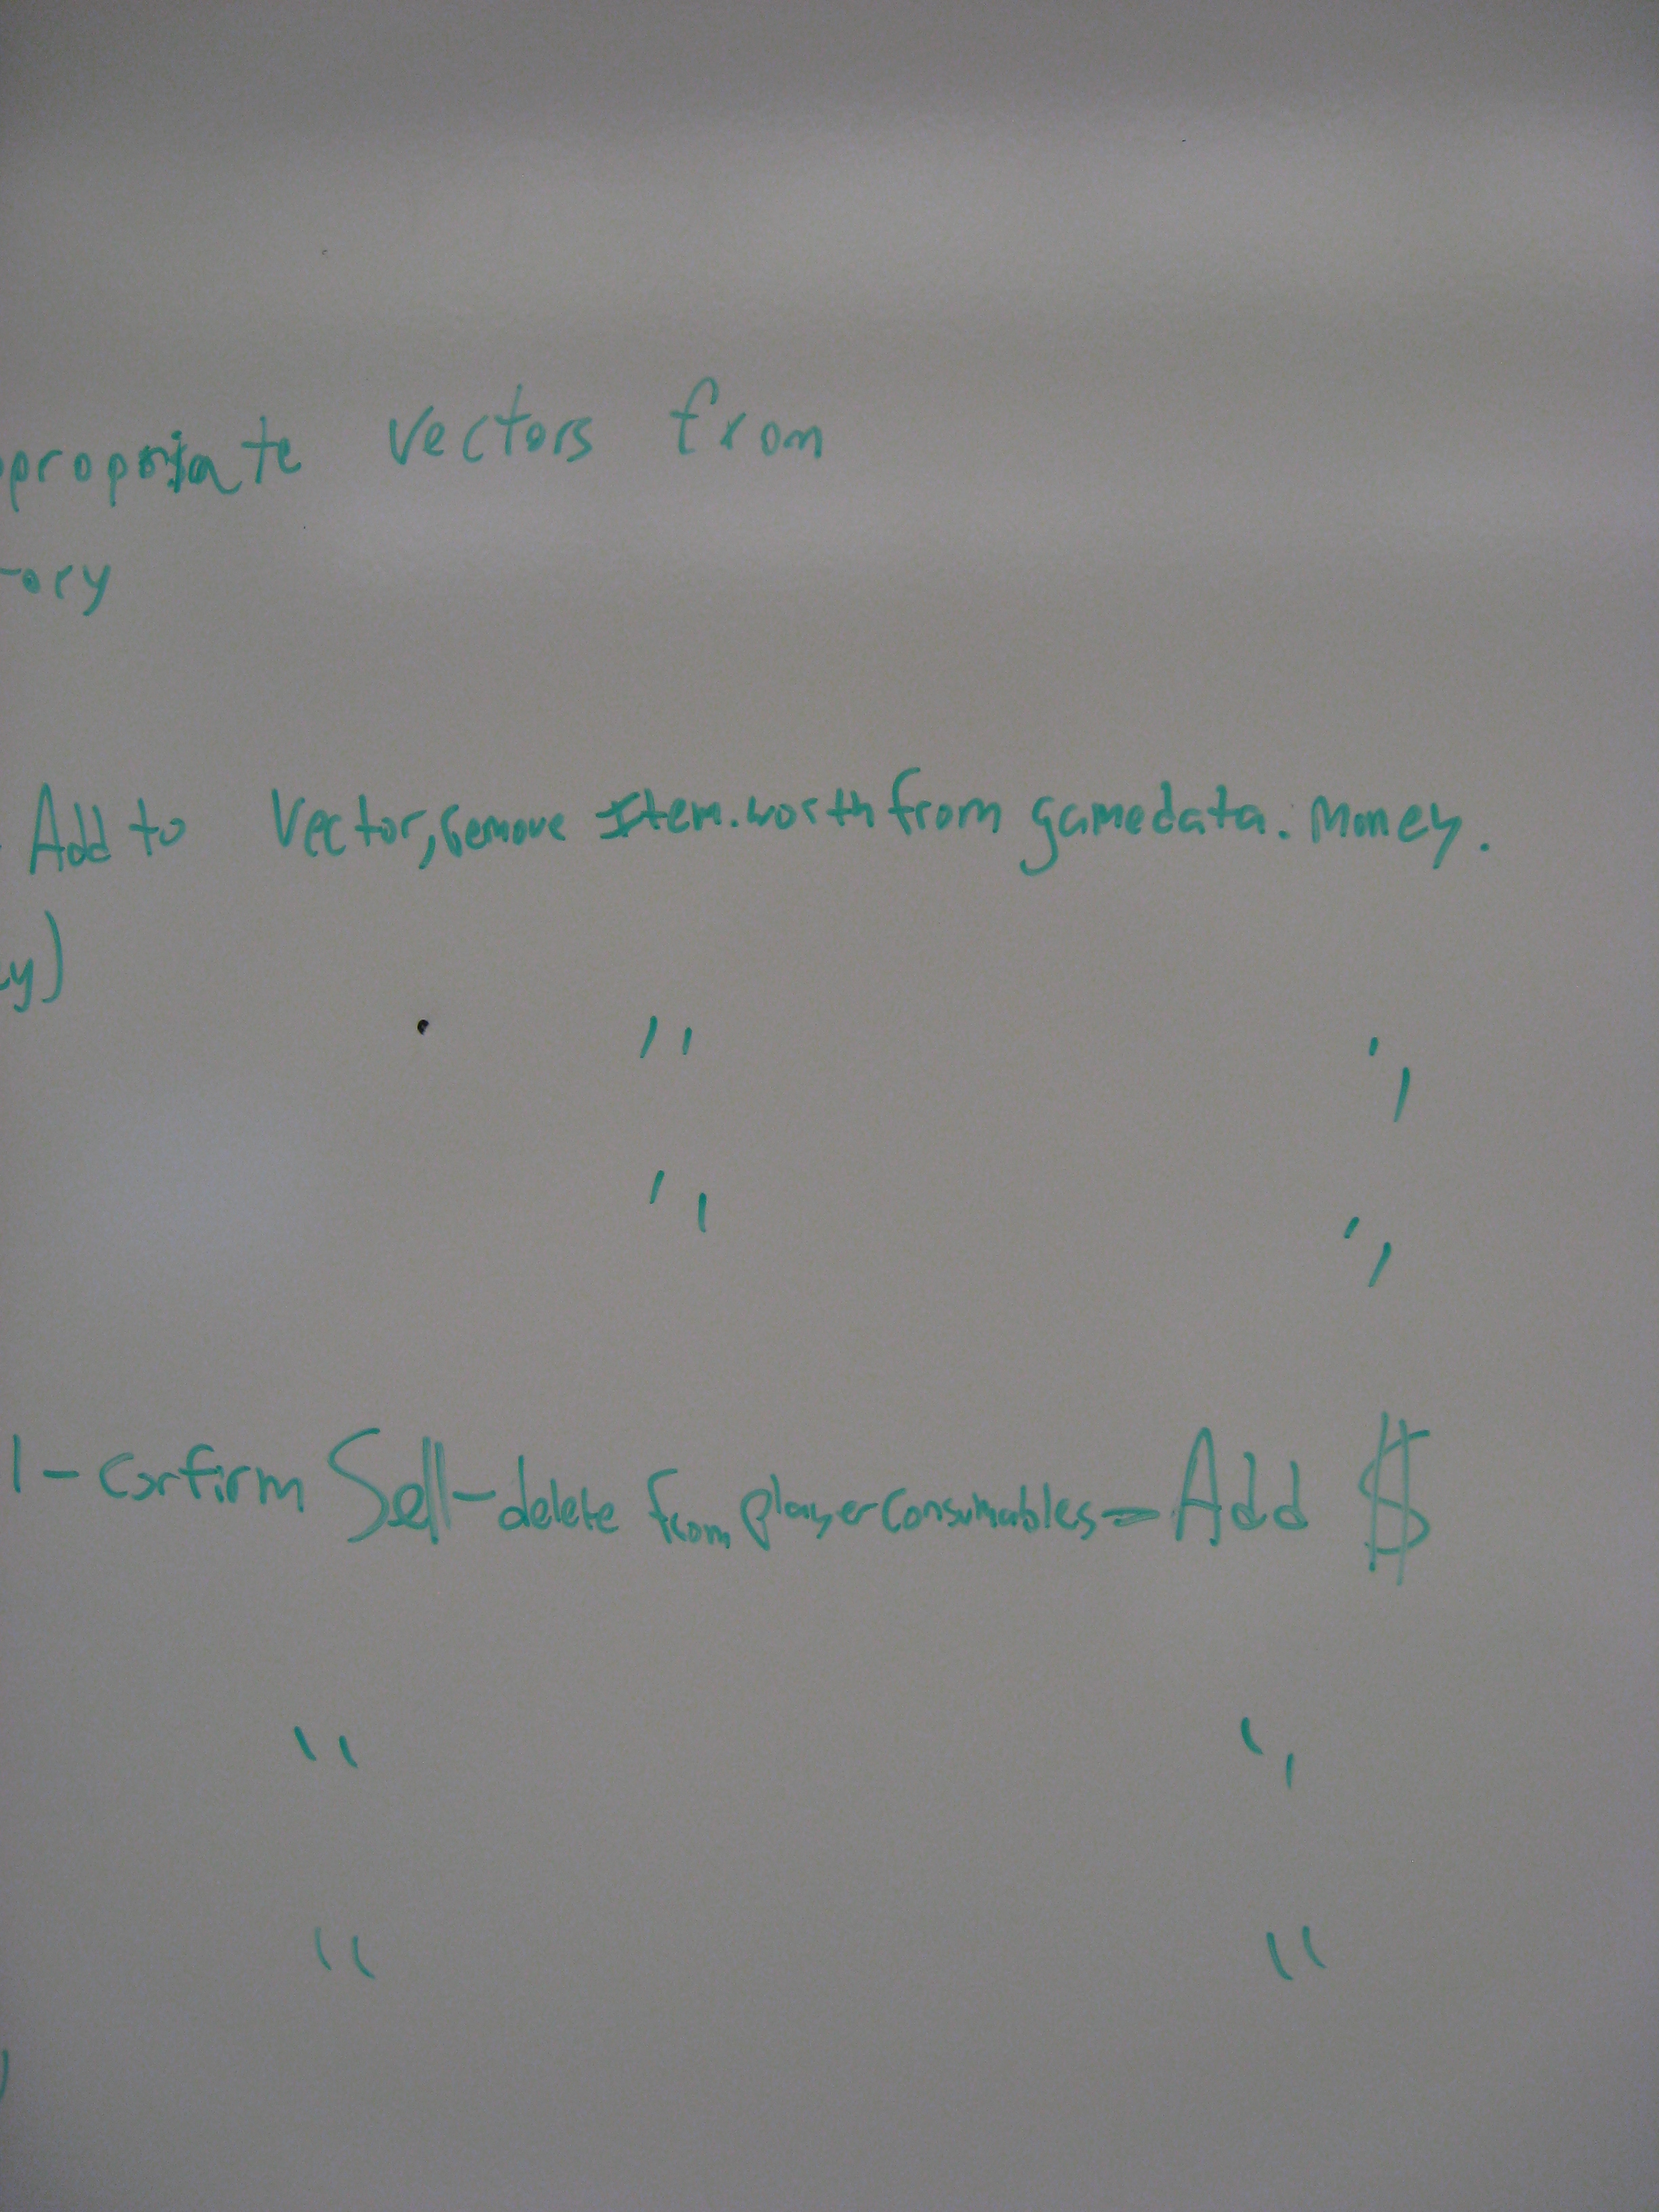 propriate vectors from
ory
Add to Vector, remove Item.worth from gamedata.money.
y)
" "
" "
1 - confirm Sell - delete from player consumables - Add $
" "
" "
)